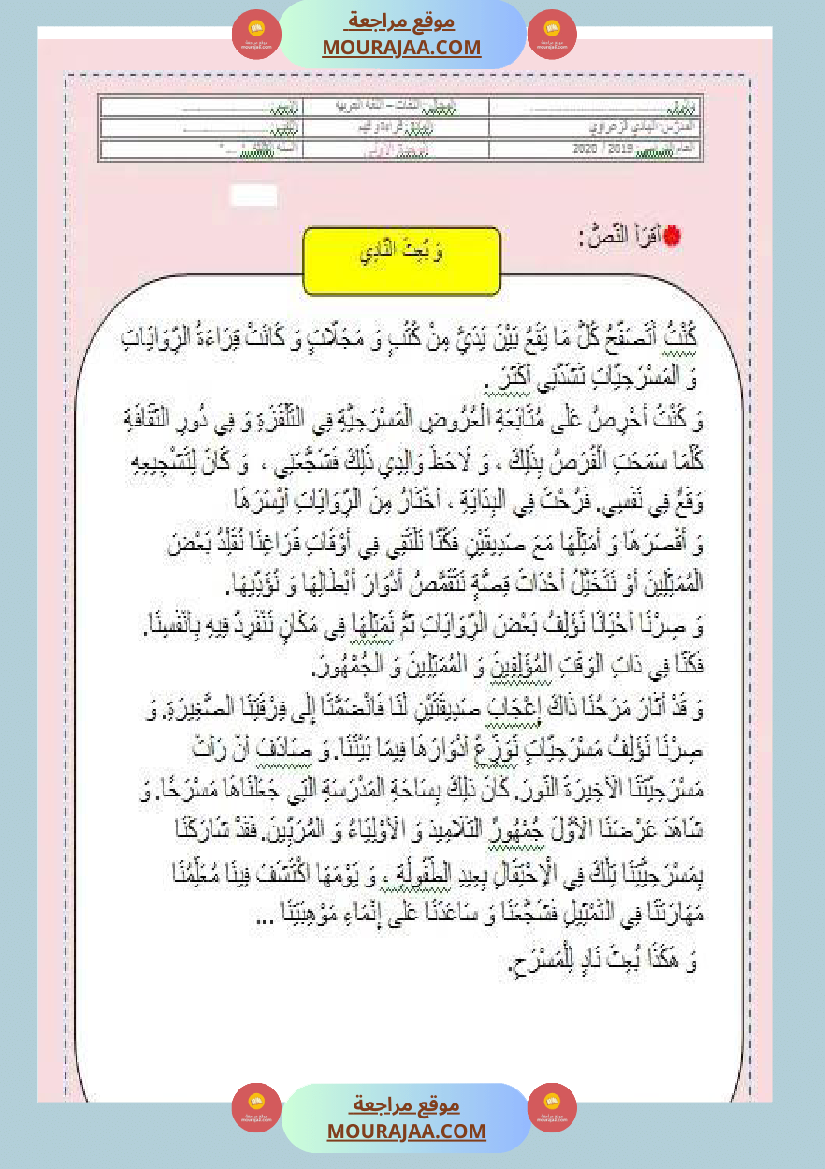 موقع مراجعة
MOURAJAA.COM
المجال: اللغات – اللغة العربية
2019 / 2020
أَقْرَأُ النَّصَّ:
وَ بُعِثَ النَّادِي
كُنْتُ أَتَصَفَّحُ كُلَّ مَا يَقَعُ بَيْنَ يَدَيَّ مِنْ كُتُبٍ وَ مَجَلَّاتٍ وَ كَانَتْ قِرَاءَةُ الرِّوَايَاتِ
وَ الْمَسْرَحِيَّاتِ تَشُدُّنِي أَكْثَرَ .
وَ كُنْتُ أَحْرِصُ عَلَى مُتَابَعَةِ الْعُرُوضِ الْمَسْرَحِيَّةِ فِي التَّلْفَزَةِ وَ فِي دُورِ الثَّقَافَةِ
كُلَّمَا سَمَحَتِ الْفُرَصُ بِذَلِكَ ، وَ لَاحَظَ وَالِدِي ذَلِكَ فَشَجَّعَنِي ، وَ كَانَ لِتَشْجِيعِهِ
وَقْعٌ فِي نَفْسِي. فَرُحْتُ فِي الْبِدَايَةِ ، أَخْتَارُ مِنَ الرِّوَايَاتِ أَيْسَرَهَا
وَ أَقْصَرَهَا وَ أُمَثِّلُهَا مَعَ صَدِيقَيْنِ فَكُنَّا نَلْتَقِي فِي أَوْقَاتِ فَرَاغِنَا نُقَلِّدُ بَعْضَ
الْمُمَثِّلِينَ أَوْ نَتَخَيَّلُ أَحْدَاثَ قِصَّةٍ نَتَقَمَّصُ أَدْوَارَ أَبْطَالِهَا وَ نُؤَدِّيهَا.
وَ صِرْنَا أَحْيَانًا نُؤَلِّفُ بَعْضَ الرِّوَايَاتِ ثُمَّ نُمَثِّلُهَا فِي مَكَانٍ نَنْفَرِدُ فِيهِ بِأَنْفُسِنَا.
فَكُنَّا فِي ذَاتِ الْوَقْتِ الْمُؤَلِّفِينَ وَ الْمُمَثِّلِينَ وَ الْجُمْهُورَ.
وَ قَدْ أَثَارَ مَرَحُنَا ذَاكَ إِعْجَابَ صَدِيقَتَيْنِ لَنَا فَانْضَمَّتَا إِلَى فِرْقَتِنَا الصَّغِيرَةِ. وَ
صِرْنَا نُؤَلِّفُ مَسْرَحِيَّاتٍ نُوَزِّعُ أَدْوَارَهَا فِيمَا بَيْنَنَا. وَ صَادَفَ أَنْ رَأَتْ
مَسْرَحِيَّتُنَا الْأَخِيرَةُ النُّورَ. كَانَ ذَلِكَ بِسَاحَةِ الْمَدْرَسَةِ الَّتِي جَعَلْنَاهَا مَسْرَحًا. وَ
شَاهَدَ عَرْضَنَا الْأَوَّلَ جُمْهُورُ التَّلَامِيذِ وَ الْأَوْلِيَاءُ وَ الْمُرَبِّينَ. فَقَدْ شَارَكْنَا
بِمَسْرَحِيَّتِنَا تِلْكَ فِي الْاِحْتِفَالِ بِعِيدِ الطُّفُولَةِ ، وَ يَوْمَهَا اكْتَشَفَ فِينَا مُعَلِّمُنَا
مَهَارَتَنَا فِي التَّمْثِيلِ فَشَجَّعَنَا وَ سَاعَدَنَا عَلَى إِنْمَاءِ مَوْهِبَتِنَا ...
وَ هَكَذَا بُعِثَ نَادٍ لِلْمَسْرَحِ.
موقع مراجعة
MOURAJAA.COM